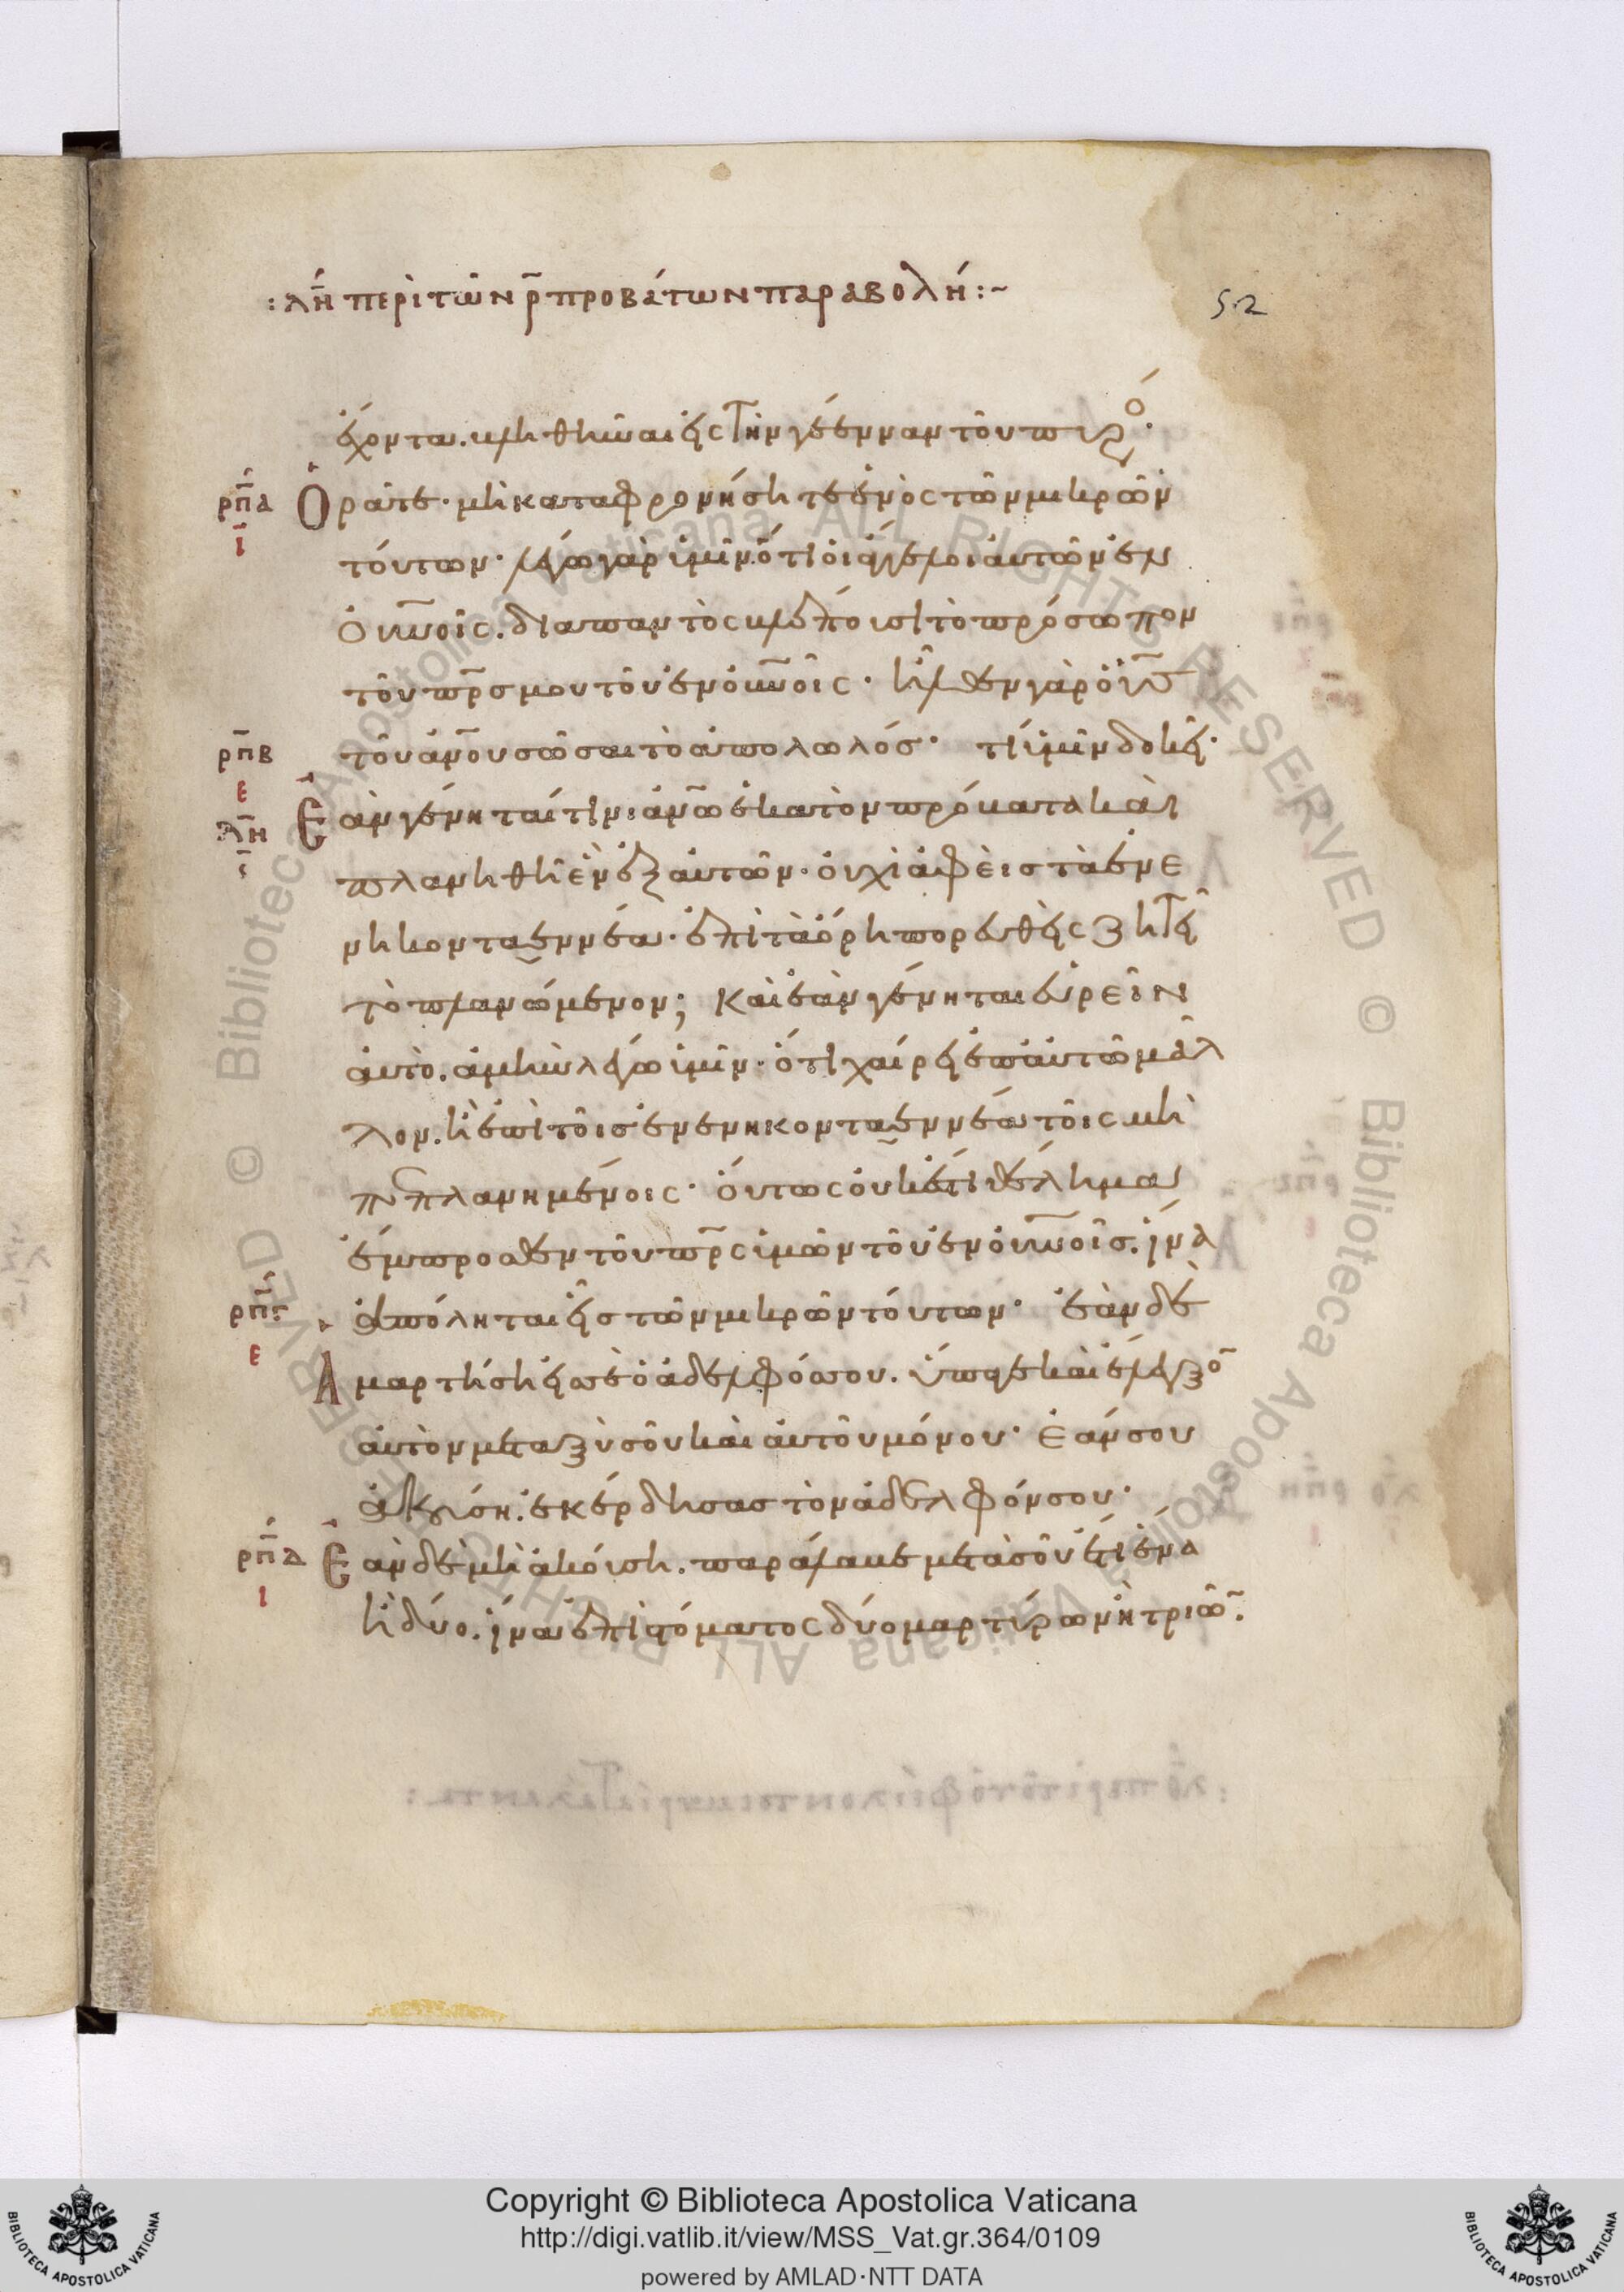 : λη̄ περὶ τῶν ρ̄ προβάτων παραβολή :~
52
ἔχοντα. βληθῆναι εἰς τὴν γέενναν τοῦ πυρό·
ρπ̄α Ὁρᾶτε· μὴ καταφρονήσητε ἑνὸς τῶν μικρῶν
ῑ τούτων· λέγω γὰρ ὑμῖν. ὅτι οἱ ἄγγελοι αὐτῶν ἐν
οὐνοῖς. διαπαντὸς βλέπουσι τὸ πρόσωπον
τοῦ πρ̄ς μου τοῦ ἐν οὐνοῖς· ἦλθεν γὰρ ὁ ῡς
ρπ̄β τοῦ ἀνου σῶσαι τὸ ἀπολωλός· τί ὑμῖν δοκεῖ·
ε
λη̄ Ἐὰν γένηταί τινι ἀνω ἑκατὸν πρόβατα καὶ
πλανηθῆ ἓν ἐξ αὐτῶν· οὐχὶ ἀφεὶς τὰ ἐνε
νηκονταεννέα· ἐπὶ τὰ ὄρη πορευθεὶς ζητεῖ
τὸ πλανώμενον; καὶ ἐὰν γένηται εὑρεῖν
αὐτὸ. ἀμὴν λέγω ὑμῖν· ὅτι χαίρει ἐπ αὐτῶ μᾶλ
λον. ἢ ἐπὶ τοῖς ἐνενηκονταεννέα τοῖς μὴ
πεπλανημένοις· οὕτως οὐκ ἔστι θέλημα
ἔμπροσθεν τοῦ πρ̄ς ὑμῶν τοῦ ἐν οὐνοῖς. ἵνα
ρπ̄γ ἀπόληται εἷς τῶν μικρῶν τούτων· ἐὰν δὲ
ε
Ἁμαρτήση εἰς σὲ ὁ ἀδελφός σου. ὕπαγε καὶ ἔλεγξο̄
αὐτὸν μεταξὺ σοῦ καὶ αὐτοῦ μόνου· ἐάν σου
ἀκούση. ἐκέρδησας τὸν ἀδελφόν σου·
ρπ̄δ Ἐὰν δὲ μὴ ἀκούση. παράλαβε μετὰ σοῦ ἔτι ἕνα
ι ἢ δύο. ἵνα ἐπὶ στόματος δύο μαρτύρων ἢ τριῶ̄.
Copyright © Biblioteca Apostolica Vaticana
http://digi.vatlib.it/view/MSS_Vat.gr.364/0109
powered by AMLAD·NTT DATA
BIBLIOTECA APOSTOLICA VATICANA
BIBLIOTECA APOSTOLICA VATICANA